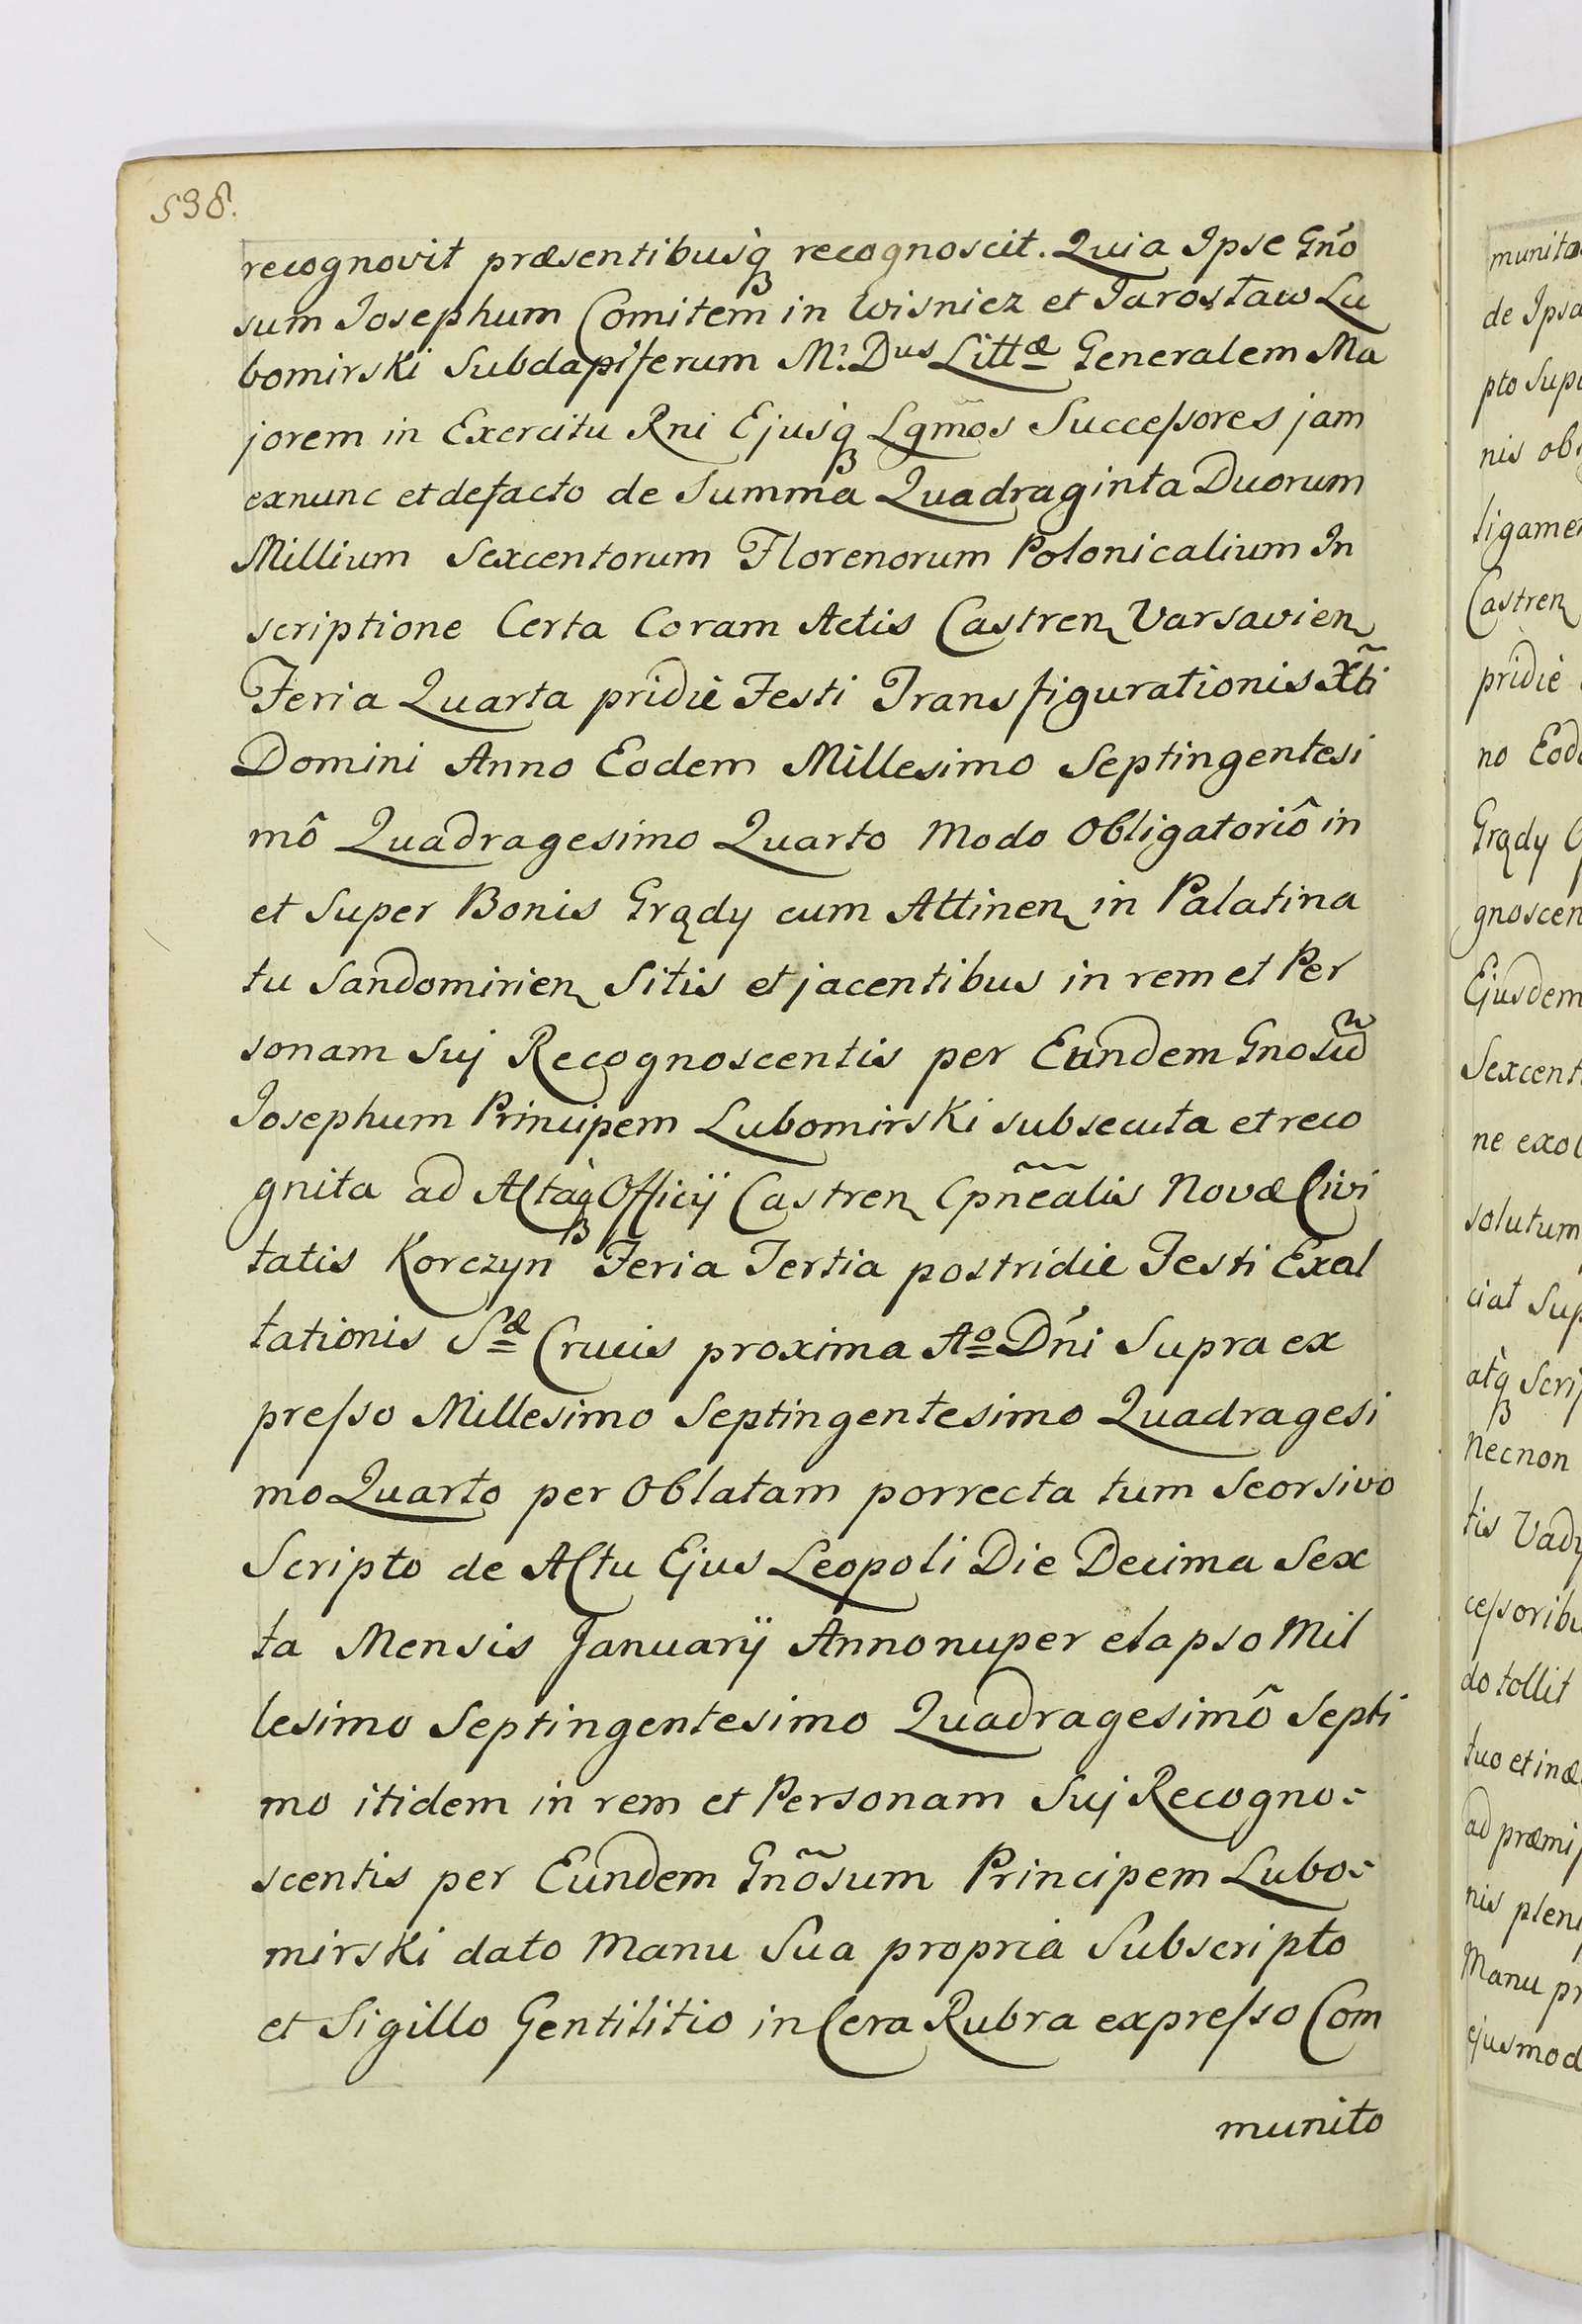 538.
recognovit præsentibusq́ʒ recognoscit. Quia Ipse Gńo
sum Josephum Comitem in Wisnicz et Jarosław Lu
bomirski Subdapiferum M: Dus Littæ Generalem Ma
jorem in Exercitu Rni Ejusq́ʒ Lgm̃os Succeſsores jam
exnunc et defacto de Summa Quadraginta Duorum
Millium Sexcentorum Florenorum Polonicalium In
scriptione Certa Coram Actis Castren Varsavien
Feria Quarta pridie Festi Transfigurationis Xt̃i
Domini Anno Eodem Millesimo Septingentesi
mô Quadragesimo Quarto Modo Obligatoriô in
et Super Bonis Grądy cum Attinen in Palatina
tu Sandomirien Sitis et jacentibus in rem et Per
sonam Sui Recognoscentis per Eundem Gnosum̃
Josephum Principem Lubomirski subsecuta et reco
gnita ad Actaq́ʒ Officij Castren Cpñealis Novæ Civi
tatis Korczyn Feria Tertia postridie Festi Exal
tationis Sæ Crucis proxima Ao Dńi Supra ex
preſso Millesimo Septingentesimo Quadragesi
mo Quarto per Oblatam porrecta tum Seorsivo
Scripto de Actu Ejus Leopoli Die Decima Sex
ta Mensis Januarij Anno nuper elapso Mil
lesimo Septingentesimo Quadragesimô Septi
mo itidem in rem et Personam Sui Recogno=
scentis per Eundem Gnõsum Principem Lubo=
mirski dato Manu Sua propria Subscripto
et Sigillo Gentilitio in Cera Rubra expreſso Com
munito
munita
de Ipsa
pto Sup
nis ob
ligamen
Castren
pridie
no Eod
Grądy
gnoscen
Ejusdem
Sexcent
ne exol
solutum
ciat Sup
atq́ʒ Scri
Necnon
tis Vady
ceſsoribu
do tollit
tuo et inæ
ad præmiſ
nis plen
Manu pr
ejusmod